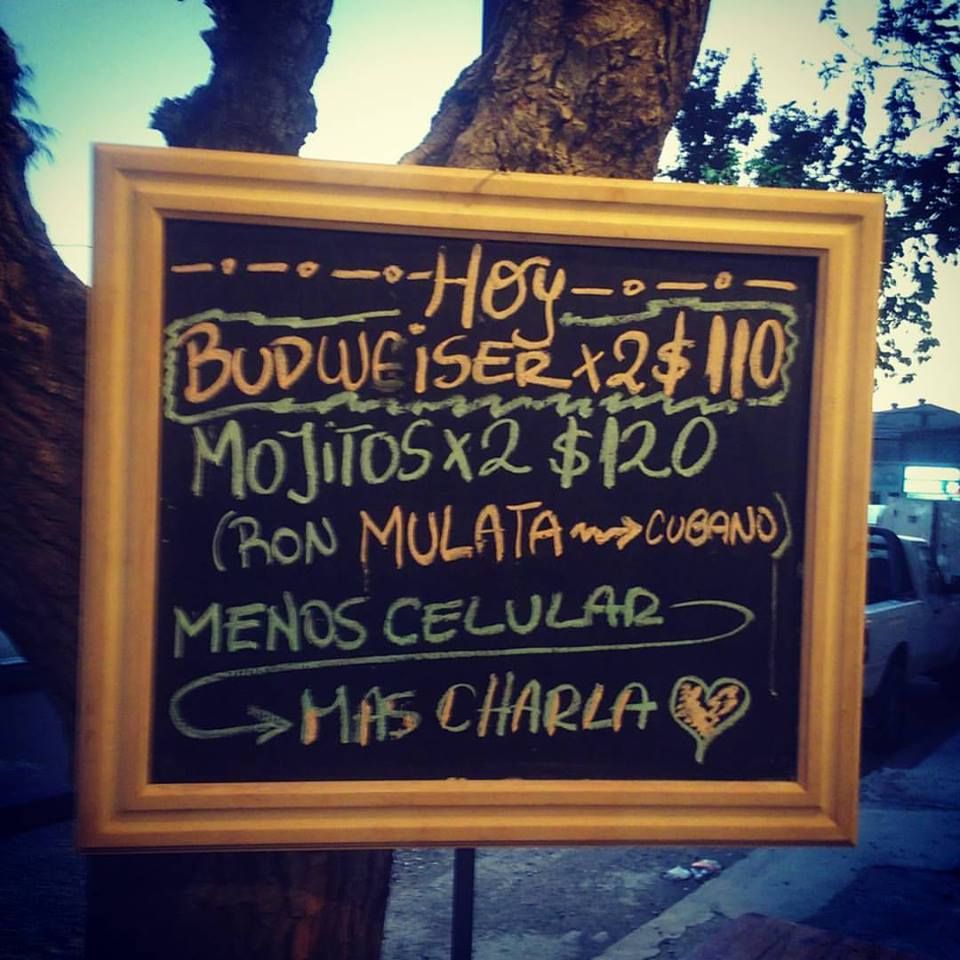 Hoy
BUDWEiSER x2 $110
MOJiTOS x2 $120
(RON MULATA → CUBANO)
MENOS CELULAR
→ MAS CHARLA